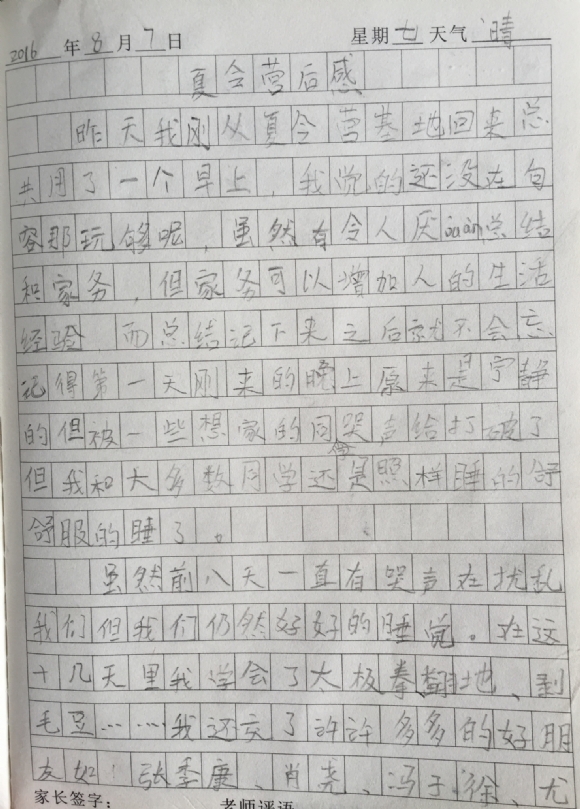 2016 年 8 月 7 日 星期 七 天气 晴
夏令营后感
昨天我刚从夏令营基地回来总
共用了一个早上，我觉的还没在句
容那玩够呢，虽然有令人厌的总结
和家务，但家务可以增加人的生活
经验，而总结记下来之后就不会忘
记得第一天刚来的晚上原来是宁静
的但被一些想家的同学哭声给打破了
但我和大多数同学还是照样睡的舒
舒服的睡了。
虽然前八天一直有哭声在扰乱
我们但我们仍然好好的睡觉。在这
十几天里我学会了太极拳翻地、剥
毛豆……我还交了許許多多的好朋
友如：张季康、肖尧、冯子徐、尤
家长签字： 老师评语